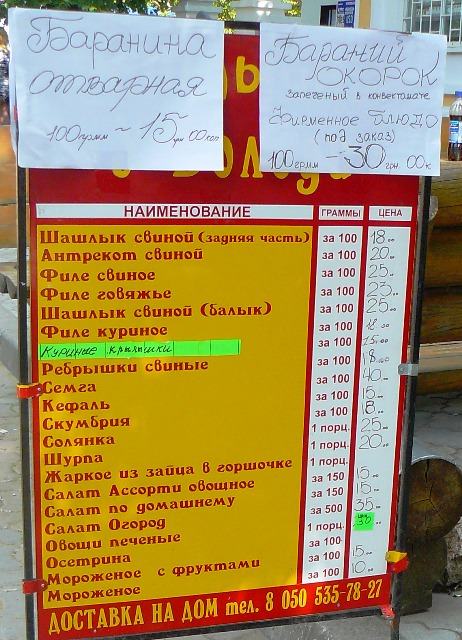 Баранина
отварная
100грмм ~ 15 грн 00коп
Бараний
ОКОРОК
запеченый в конвектомате
Фирменное блюдо
(под заказ)
100грмм – 30 грн. 00к
НАИМЕНОВАНИЕ ГРАММЫ ЦЕНА
Шашлык свиной (задняя часть) за 100 18.00
Антрекот свиной за 100 20..
Филе свиное за 100 25..
Филе говяжье за 100 23..
Шашлык свиной (балык) за 100 25..
Филе куриное за 100 18.00
Куриные крылышки за 100 15..
Ребрышки свиные за 100 18.00
Семга за 100 40..
Кефаль за 100 15..
Скумбрия за 100 18..
Солянка 1 порц. 25..
Шурпа 1 порц. 20..
Жаркое из зайца в горшочке 1 порц.
Салат Ассорти овощное за 150 15..
Салат по домашнему за 150 15..
Салат Огород за 500 35..
Овощи печеные 1 порц. 30
Осетрина за 100
Мороженое с фруктами за 100 15..
Мороженое за 100 10..
ДОСТАВКА НА ДОМ тел. 8 050 535-78-27